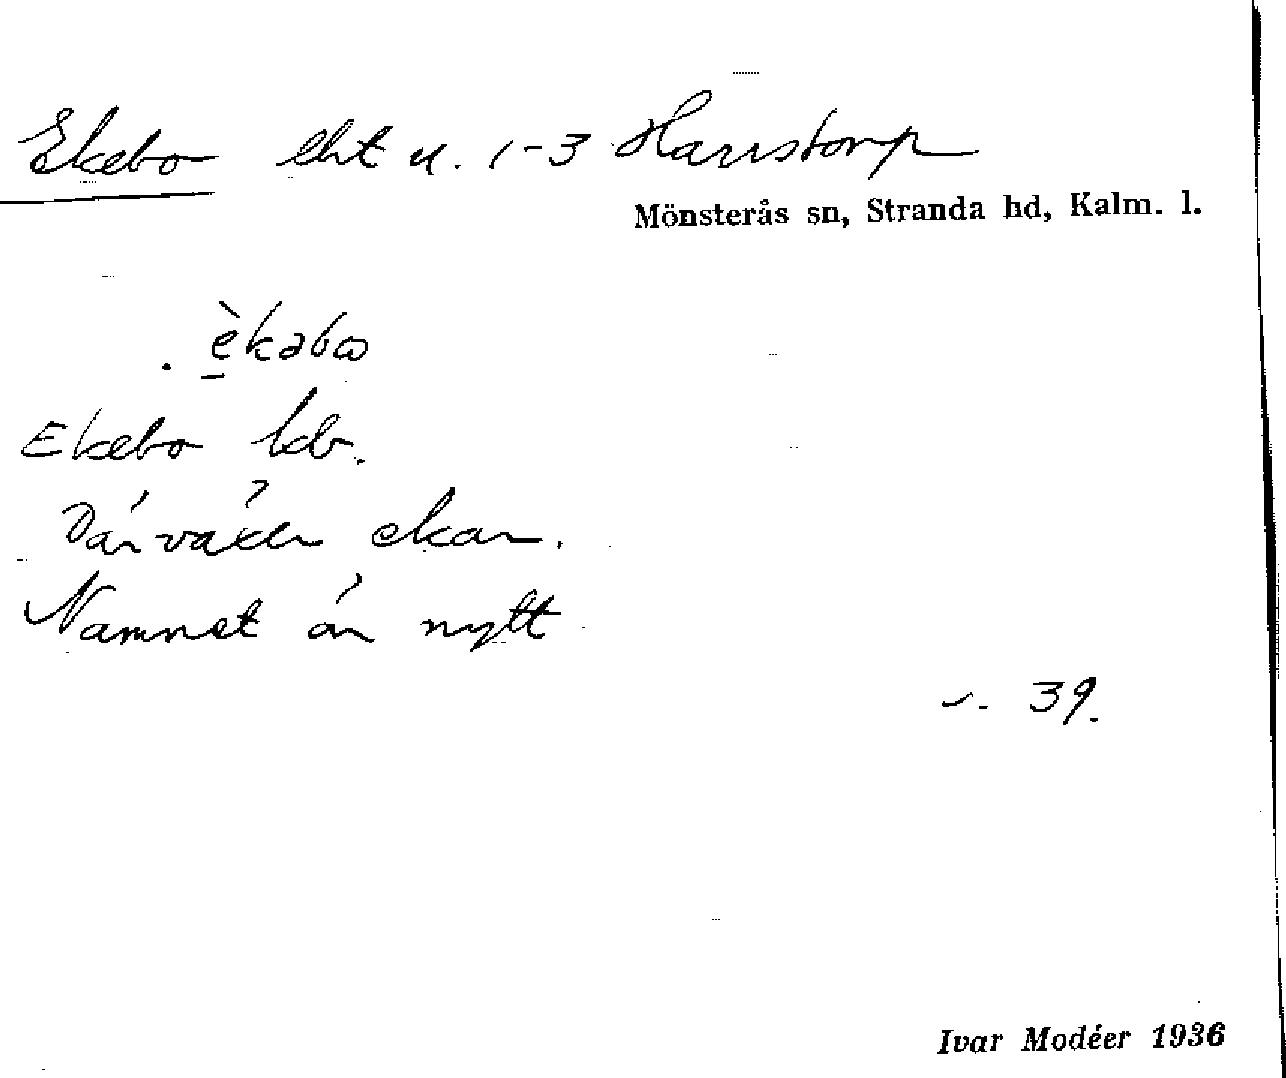 Ekebo lht u. 1-3 Harrstorp
Mönsterås sn, Stranda hd, Kalm. l.
èkəbω
Ekebo kb.
Där växer ekar.
Namnet är nytt
s. 39.
Ivar Modéer 1936